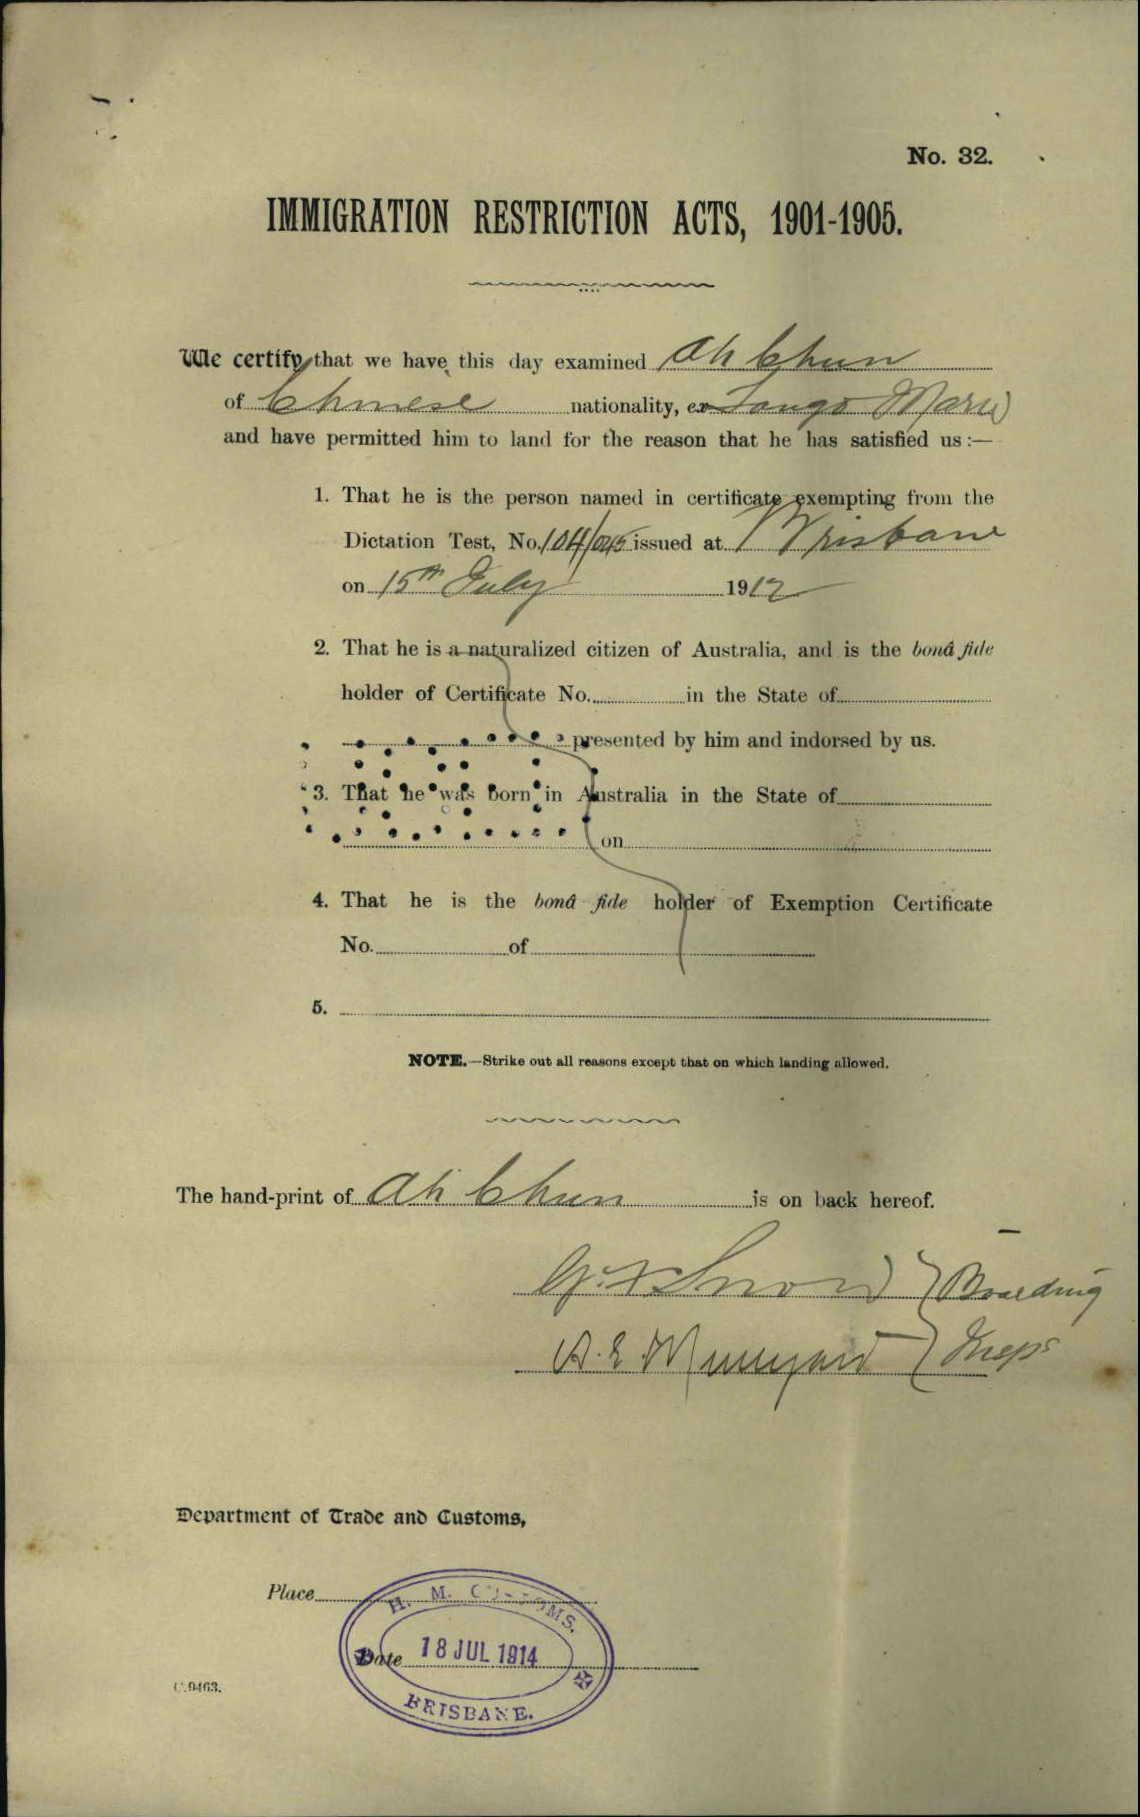 No. 32.
IMMIGRATION RESTRICTION ACTS, 1901-1905.
We certify that we have this day examined Ah Chun
of Chinese nationality, ex Tango Maru
and have permitted him to land for the reason that he has satisfied us:—
1. That he is the person named in certificate exempting from the
Dictation Test, No. 104/045 issued at Brisbane
on 15th July 1912
2. That he is a naturalized citizen of Australia, and is the bonâ fide
holder of Certificate No. in the State of
presented by him and indorsed by us.
3. That he was born in Australia in the State of
on
4. That he is the bonâ fide holder of Exemption Certificate
No. of
5.
NOTE.—Strike out all reasons except that on which landing allowed.
The hand-print of Ah Chun is on back hereof.
Snow } Boarding
A. E. } Insps
Department of Trade and Customs,
Place
H. M. CUSTOMS.
Date 18 JUL 1914
BRISBANE.
C.9463.